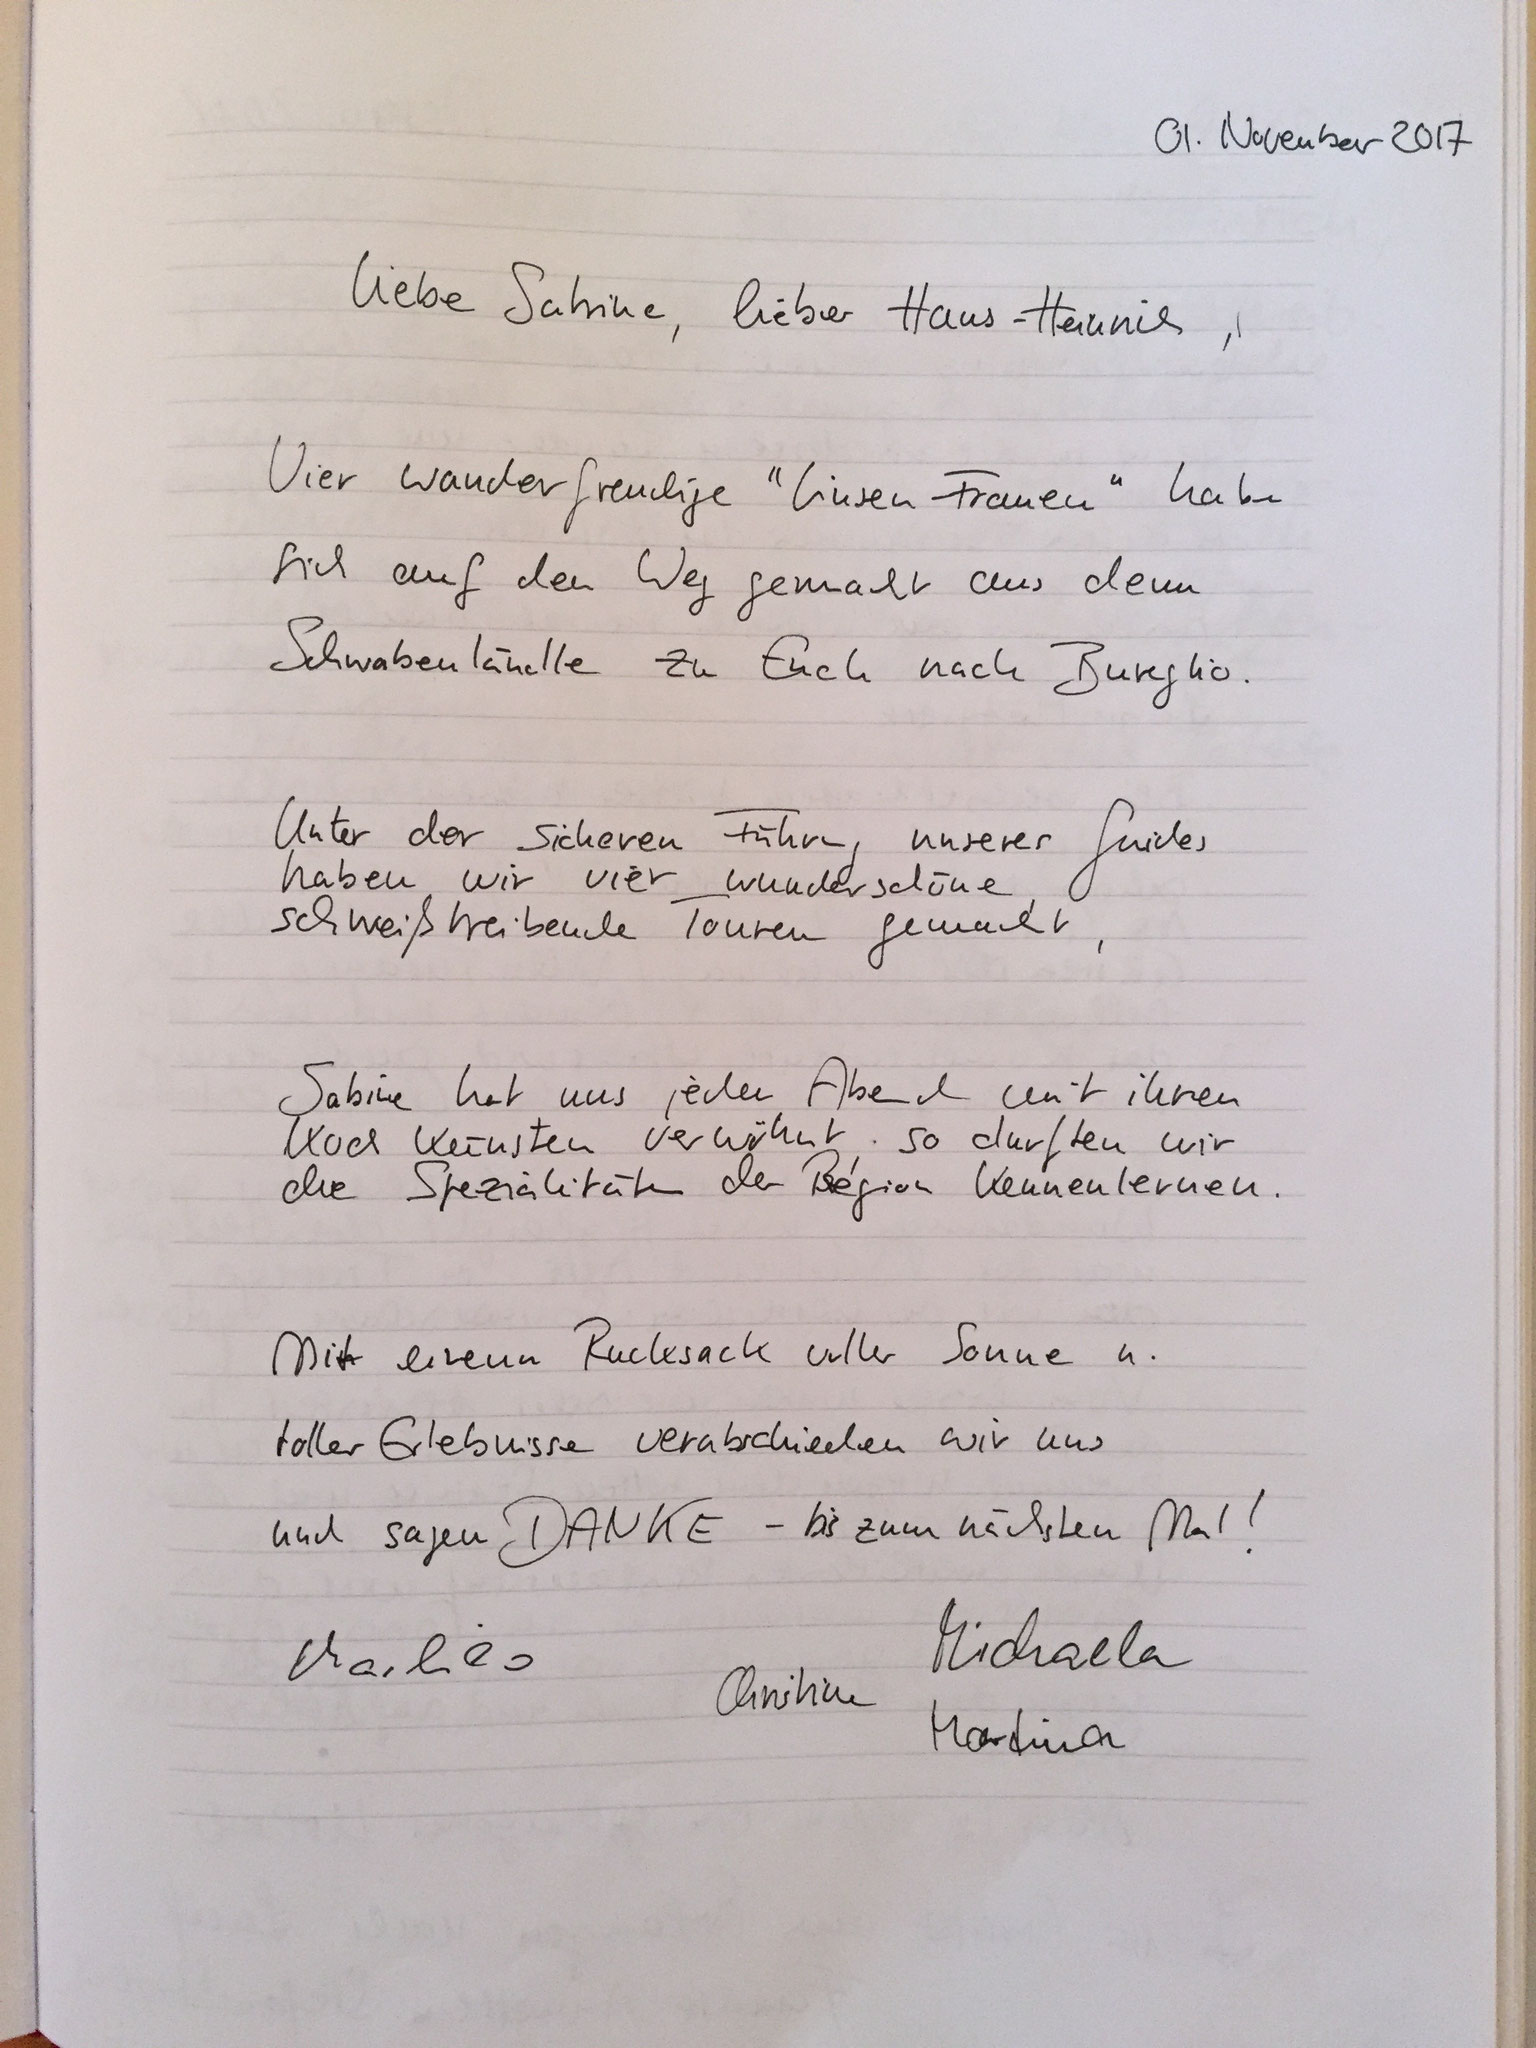 01. November 2017
Liebe Sabine, lieber Hans-Heinrich,
Vier wanderfreudige "Linsen-Frauen" haben
sich auf den Weg gemacht aus dem
Schwabenländle zu Euch nach Bureglio.
Unter der sicheren Führung unserer Guides
haben wir vier wunderschöne,
schweißtreibende Touren gemacht,
Sabine hat uns jeden Abend mit ihren
Koch künsten verwöhnt. so durften wir
die Spezialitäten der Région kennenlernen.
Mit einem Rucksack voller Sonne u.
toller Erlebnisse verabschieden wir uns
und sagen DANKE - bis zum nächsten Mal!
Marlies
Michaela
Christine
Martina